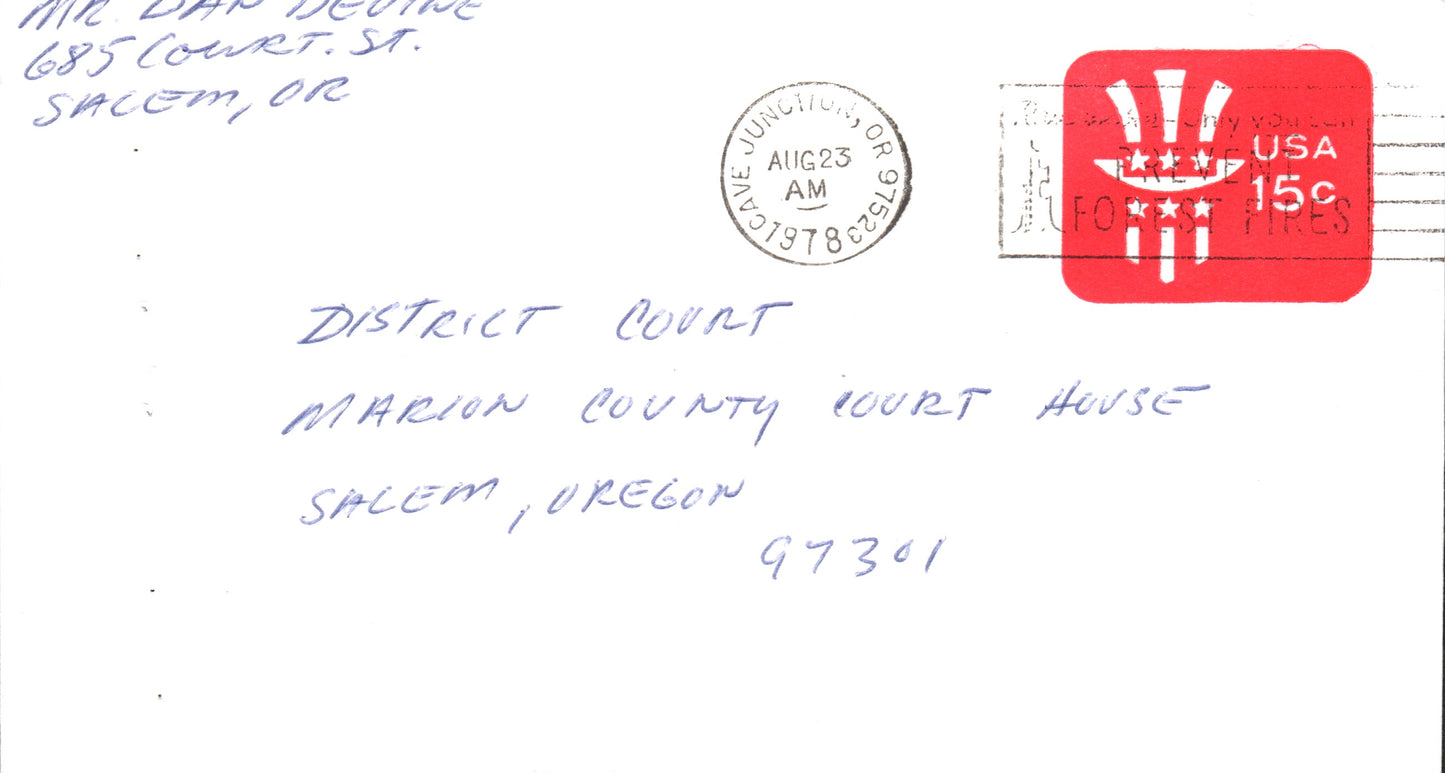 MR. DAN DEVINE
685 COURT. ST.
SALEM, OR
CAVE JUNCTION, OR 97523
AUG 23
AM
1978
Only you can
PREVENT
FOREST FIRES
USA
15c
DISTRICT COURT
MARION COUNTY COURT HOUSE
SALEM, OREGON
97301